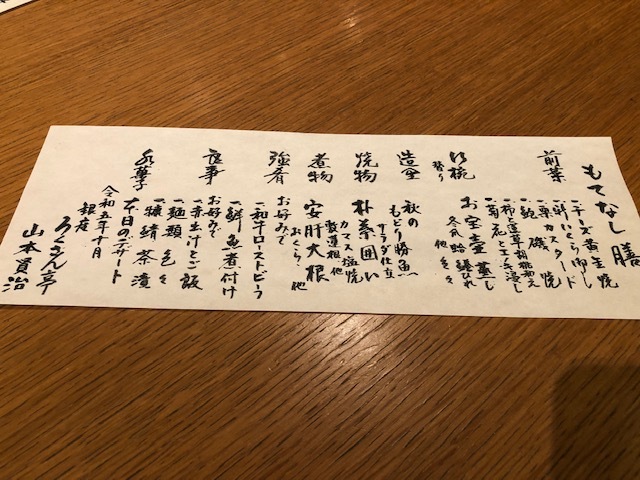 もてなし膳
前菜
一、チーズ黄金焼
一、新いくら卸し
一、栗カスタード
一、鮑磯焼
一、柿と蓮草胡桃和え
一、菊花と玉子浸し
吸椀
替り
お宝壺蒸し
冬瓜 蛤 鱶ひれ
他色々
造里
秋の
もどり勝魚
サラダ仕立
焼物
朴葉囲い
カマス塩焼
穀蓮根他
煮物
安肝大根
おくら、他
強肴
お好みで
一、和牛ローストビーフ
一、鮮魚煮付け
食事
お好みで
一、赤出汁とご飯
一、麺類 色々
一、糠鯖茶漬
水菓子
本日のデザート
令和五年十月
銀座
ろくさん亭
山本資治